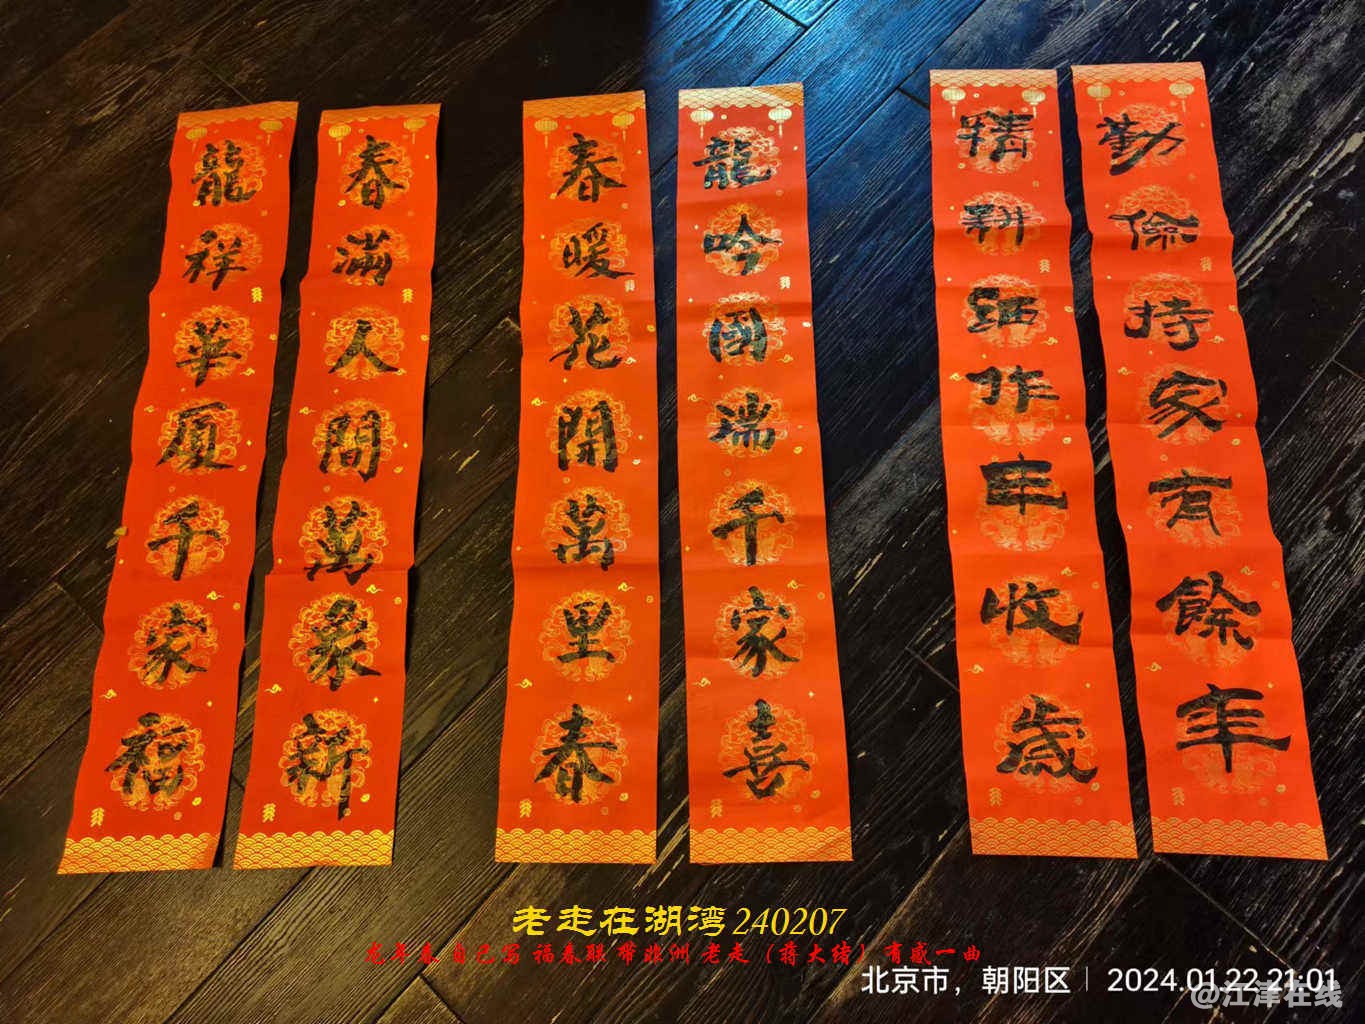 龍祥華厦千家福
春滿人間萬象新
春暖花開萬里春
龍吟國瑞千家喜
精耕細作年收歲
勤儉持家有餘年
老走在湖湾240207
龙年春 自己写 福春联 带非洲 老走（蒋大绪）有感一曲
北京市，朝阳区 | 2024.01.22 21:01
@江津在线